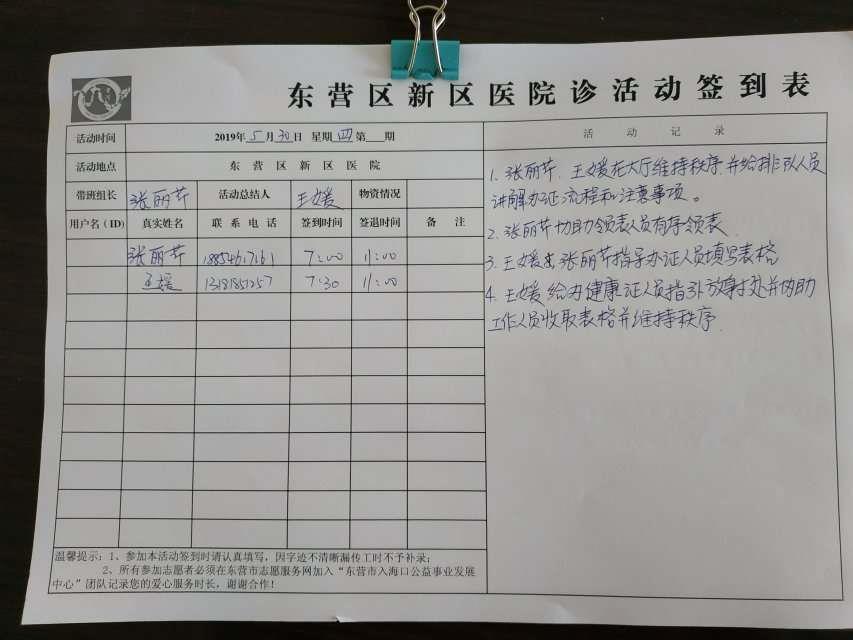 东营区新区医院诊活动签到表
活动时间 2019年5月30日 星期四第 期
活动地点 东营区新区医院
带班组长 张丽芹 活动总结人 王媛 物资情况
用户名(ID) 真实姓名 联系电话 签到时间 签退时间 备注
张丽芹 18854617161 7:00 11:00
王媛 13181851257 7:30 11:00
温馨提示:1、参加本活动签到时请认真填写,因字迹不清晰漏传工时不予补录;
2、所有参加志愿者必须在东营市志愿服务网加入“东营市入海口公益事业发展
中心”团队记录您的爱心服务时长,谢谢合作!
活动记录
1. 张丽芹、王媛在大厅维持秩序,并给排队人员
讲解办证流程和注意事项。
2. 张丽芹协助领表人员有序领表
3. 王媛 张丽芹指导办证人员填写表格
4. 王媛给办健康证人员指引放射处并协助
工作人员收取表格并维持秩序.